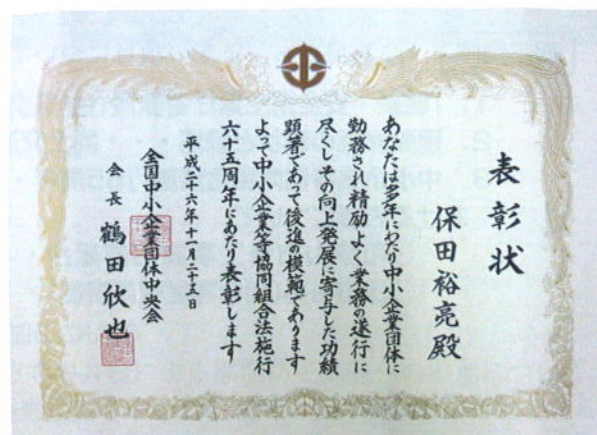 表彰状
保田裕亮殿
あなたは多年にわたり中小企業団体に
勤務され精励よく業務の遂行に
尽くしその向上発展に寄与した功績
顕著であって後進の模範であります
よって中小企業等協同組合法施行
六十五周年にあたり表彰します
平成二十六年十一月二十五日
全国中小企業団体中央会
会長 鶴田欣也